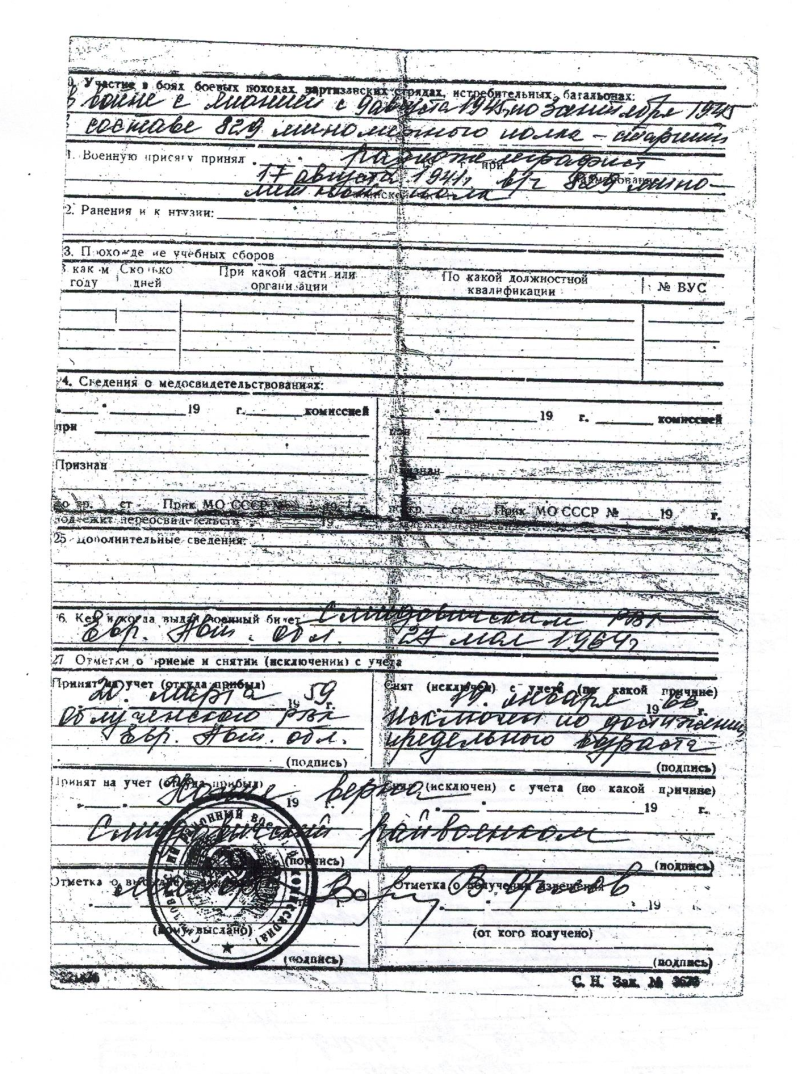 Участие в боях боевых походах, партизанских отрядах, истребительных батальонах:
В войне с Японией с 9 августа 1945 по 3 сентября 1945
В составе 829 минометного полка – старший
1. Военную присягу принял при
17 августа 1941 г в/ч 829 мино-
метном полка
2. Ранения и к нтузии:
3. П охожде не учебных сборов
В как м году Ско ько дней При какой части или организации По какой должностной квалификации № ВУС
4. Сведения о медосвидетельствованиях:
19 г. комиссией 19 г. комиссией
при при
Признан Признан
по гр. ст Прик МО СССР № по гр. ст. Прик. МО СССР № 19 г.
подлежит переосвидетельств 19
25 Дополнительные сведения:
6. Кем и когда выдан военный билет Смидовичским РВК
Евр. Авт. обл. 27 мая 1964 г
27 Отметки о приеме и снятии (исключении) с учета
Принят на учет (откуда прибыл) Снят (исключен) с учета (по какой причине)
20 марта 1959 г. 19 января 1966 г.
Облученского РВК Исключен по достижении
Евр. Авт. обл. предельного возраста
(подпись) (подпись)
Принят на учет (откуда прибыл) Снят (исключен) с учета (по какой причине)
Копия верна
19 г. 19 г.
Смидовичский райвоенком
(подпись) (подпись)
Отметка о Отметка о получении извещения
19 г.
(кому выслано) (от кого получено)
(подпись) (подпись)
С. Н. Зак. № 3676